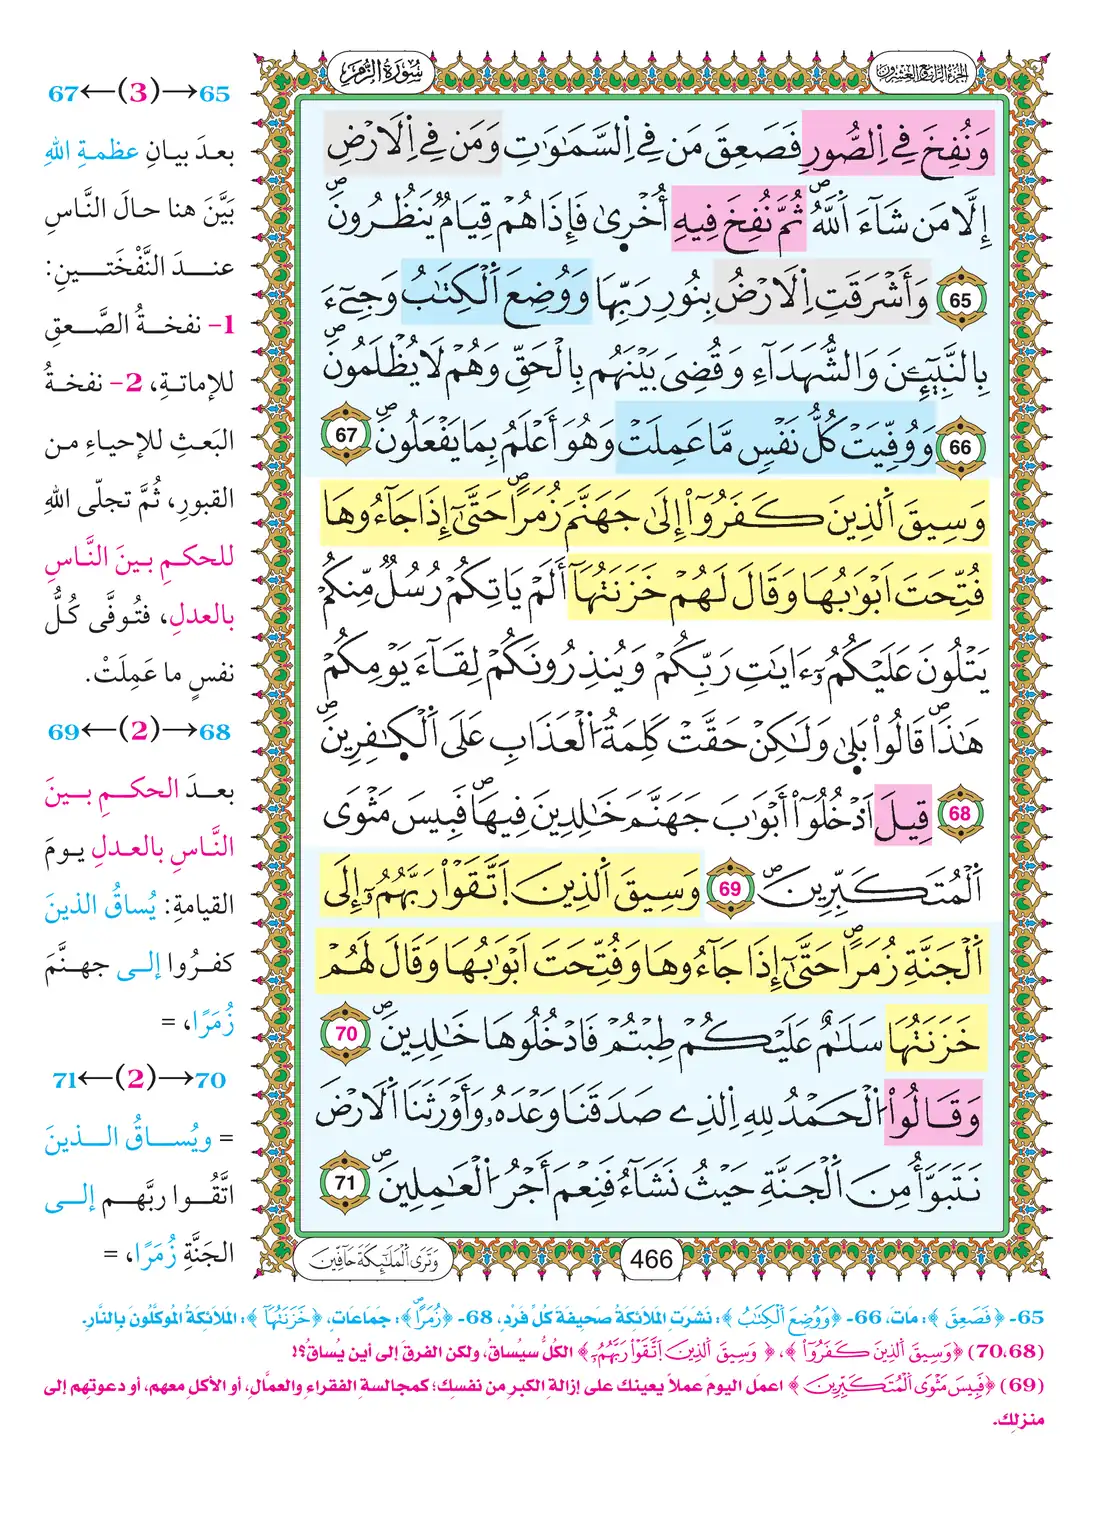 سُورَةُ الزُّمَرِ
الجزء الرابع والعشرون
وَنُفِخَ فِے اِ۬لصُّورِ فَصَعِقَ مَن فِے اِ۬لسَّمَٰوَٰتِ وَمَن فِے اِ۬لَارْضِ
إِلَّا مَن شَآءَ اَ۬للَّهُۖ ثُمَّ نُفِخَ فِيهِ أُخْر۪يٰ فَإِذَا هُمْ قِيَامٞ يَنظُرُونَۖ
65 وَأَشْرَقَتِ اِ۬لَارْضُ بِنُورِ رَبِّهَا وَوُضِعَ اَ۬لْكِتَٰبُ وَجِےٓءَ
بِالنَّبِيٓـِٕنَ وَالشُّهَدَآءِ وَقُضِيَ بَيْنَهُم بِالْحَقِّ وَهُمْ لَا يُظْلَمُونَۖ
66 وَوُفِّيَتْ كُلُّ نَفْسٖ مَّا عَمِلَتْ وَهُوَ أَعْلَمُ بِمَا يَفْعَلُونَۖ 67
وَسِيقَ اَ۬لذِينَ كَفَرُوٓاْ إِلَىٰ جَهَنَّمَ زُمَراًۖ حَتَّىٰٓ إِذَا جَآءُوهَا
فُتِّحَتَ اَبْوَٰبُهَا وَقَالَ لَهُمْ خَزَنَتُهَآ أَلَمْ يَاتِكُمْ رُسُلٞ مِّنكُمْ
يَتْلُونَ عَلَيْكُمُۥٓ ءَايَٰتِ رَبِّكُمْ وَيُنذِرُونَكُمْ لِقَآءَ يَوْمِكُمْ
هَٰذَاۖ قَالُواْ بَلَىٰ وَلَٰكِنْ حَقَّتْ كَلِمَةُ اُ۬لْعَذَابِ عَلَى اَ۬لْكٰ۪فِرِينَۖ
68 قِيلَ اَ۟دْخُلُوٓاْ أَبْوَٰبَ جَهَنَّمَ خَٰلِدِينَ فِيهَاۖ فَبِيسَ مَثْوَى
اَ۬لْمُتَكَبِّرِينَۖ 69 وَسِيقَ اَ۬لذِينَ اَ۪تَّقَوْاْ رَبَّهُمُۥٓ إِلَى
اَ۬لْجَنَّةِ زُمَراًۖ حَتَّىٰٓ إِذَا جَآءُوهَا وَفُتِّحَتَ اَبْوَٰبُهَا وَقَالَ لَهُمْ
خَزَنَتُهَا سَلَٰمٌ عَلَيْكُمْ طِبْتُمْ فَادْخُلُوهَا خَٰلِدِينَۖ 70
وَقَالُواْ اُ۬لْحَمْدُ لِلهِ اِ۬لذِے صَدَقَنَا وَعْدَهُۥ وَأَوْرَثَنَا اَ۬لَارْضَ
نَتَبَوَّأُ مِنَ اَ۬لْجَنَّةِ حَيْثُ نَشَآءُ فَنِعْمَ أَجْرُ اُ۬لْعَٰمِلِينَۖ 71
466
وَتَرَى اَ۬لْمَلَٰٓئِكَةَ حَآفِّينَ
65→(3)←67
بعدَ بيانِ عظمةِ اللهِ
بَيَّنَ هنا حالَ النَّاسِ
عندَ النَّفْخَتينِ:
1- نفخةُ الصَّعقِ
للإماتةِ، 2- نفخةُ
البَعثِ للإحياءِ من
القبورِ، ثُمَّ تجلّى اللهِ
للحكمِ بينَ النَّاسِ
بالعدلِ، فتُوفَّى كُلُّ
نفسٍ ما عَمِلَتْ.
68→(2)←69
بعدَ الحكمِ بينَ
النَّاسِ بالعدلِ يومَ
القيامةِ: يُساقُ الذينَ
كفرُوا إلى جهنَّمَ
زُمَرًا، =
70→(2)←71
= ويُساقُ الذينَ
اتَّقُوا ربَّهم إلى
الجَنَّةِ زُمَرًا، =
65- ﴿فَصَعِقَ﴾: مَاتَ، 66- ﴿وَوُضِعَ اَ۬لْكِتَٰبُ﴾: نَشَرَتِ المَلَائِكَةُ صَحِيفَةَ كُلِّ فَرْدٍ، 68- ﴿زُمَراًۖ﴾: جَمَاعَاتٍ، ﴿خَزَنَتُهَآ﴾: المَلَائِكَةُ المُوَكَّلُونَ بِالنَّارِ.
(70،68) ﴿وَسِيقَ اَ۬لذِينَ كَفَرُوٓاْ﴾، ﴿وَسِيقَ اَ۬لذِينَ اَ۪تَّقَوْاْ رَبَّهُمُۥٓ﴾ الكُلُّ سيُساقُ، ولكن الفرقَ إلى أين يُساقُ؟!
(69) ﴿فَبِيسَ مَثْوَى اَ۬لْمُتَكَبِّرِينَ﴾ اعمل اليومَ عملاً يعينك على إزالةِ الكبرِ من نفسِك؛ كمجالسةِ الفقراءِ والعمَّالِ، أو الأكلِ معهم، أو دعوتِهم إلى
منزلِك.